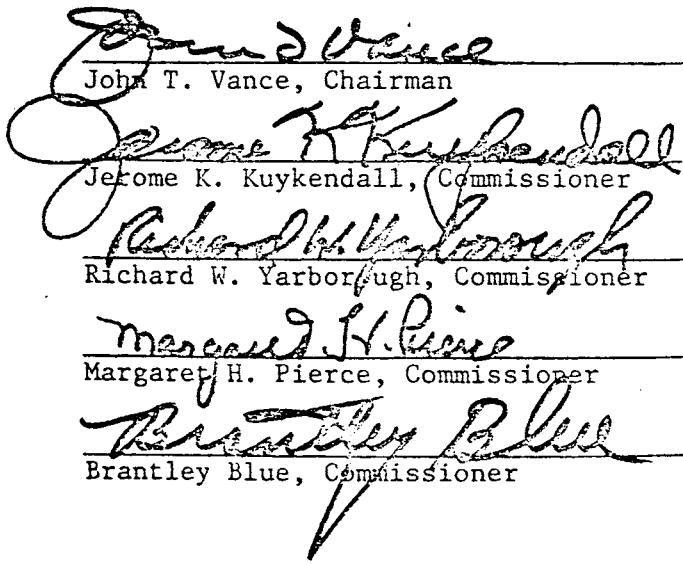 John T Vance
John T. Vance, Chairman
Jerome K Kuykendall
Jerome K. Kuykendall, Commissioner
Richard W. Yarborough
Richard W. Yarborough, Commissioner
Margaret H. Pierce
Margaret H. Pierce, Commissioner
Brantley Blue
Brantley Blue, Commissioner